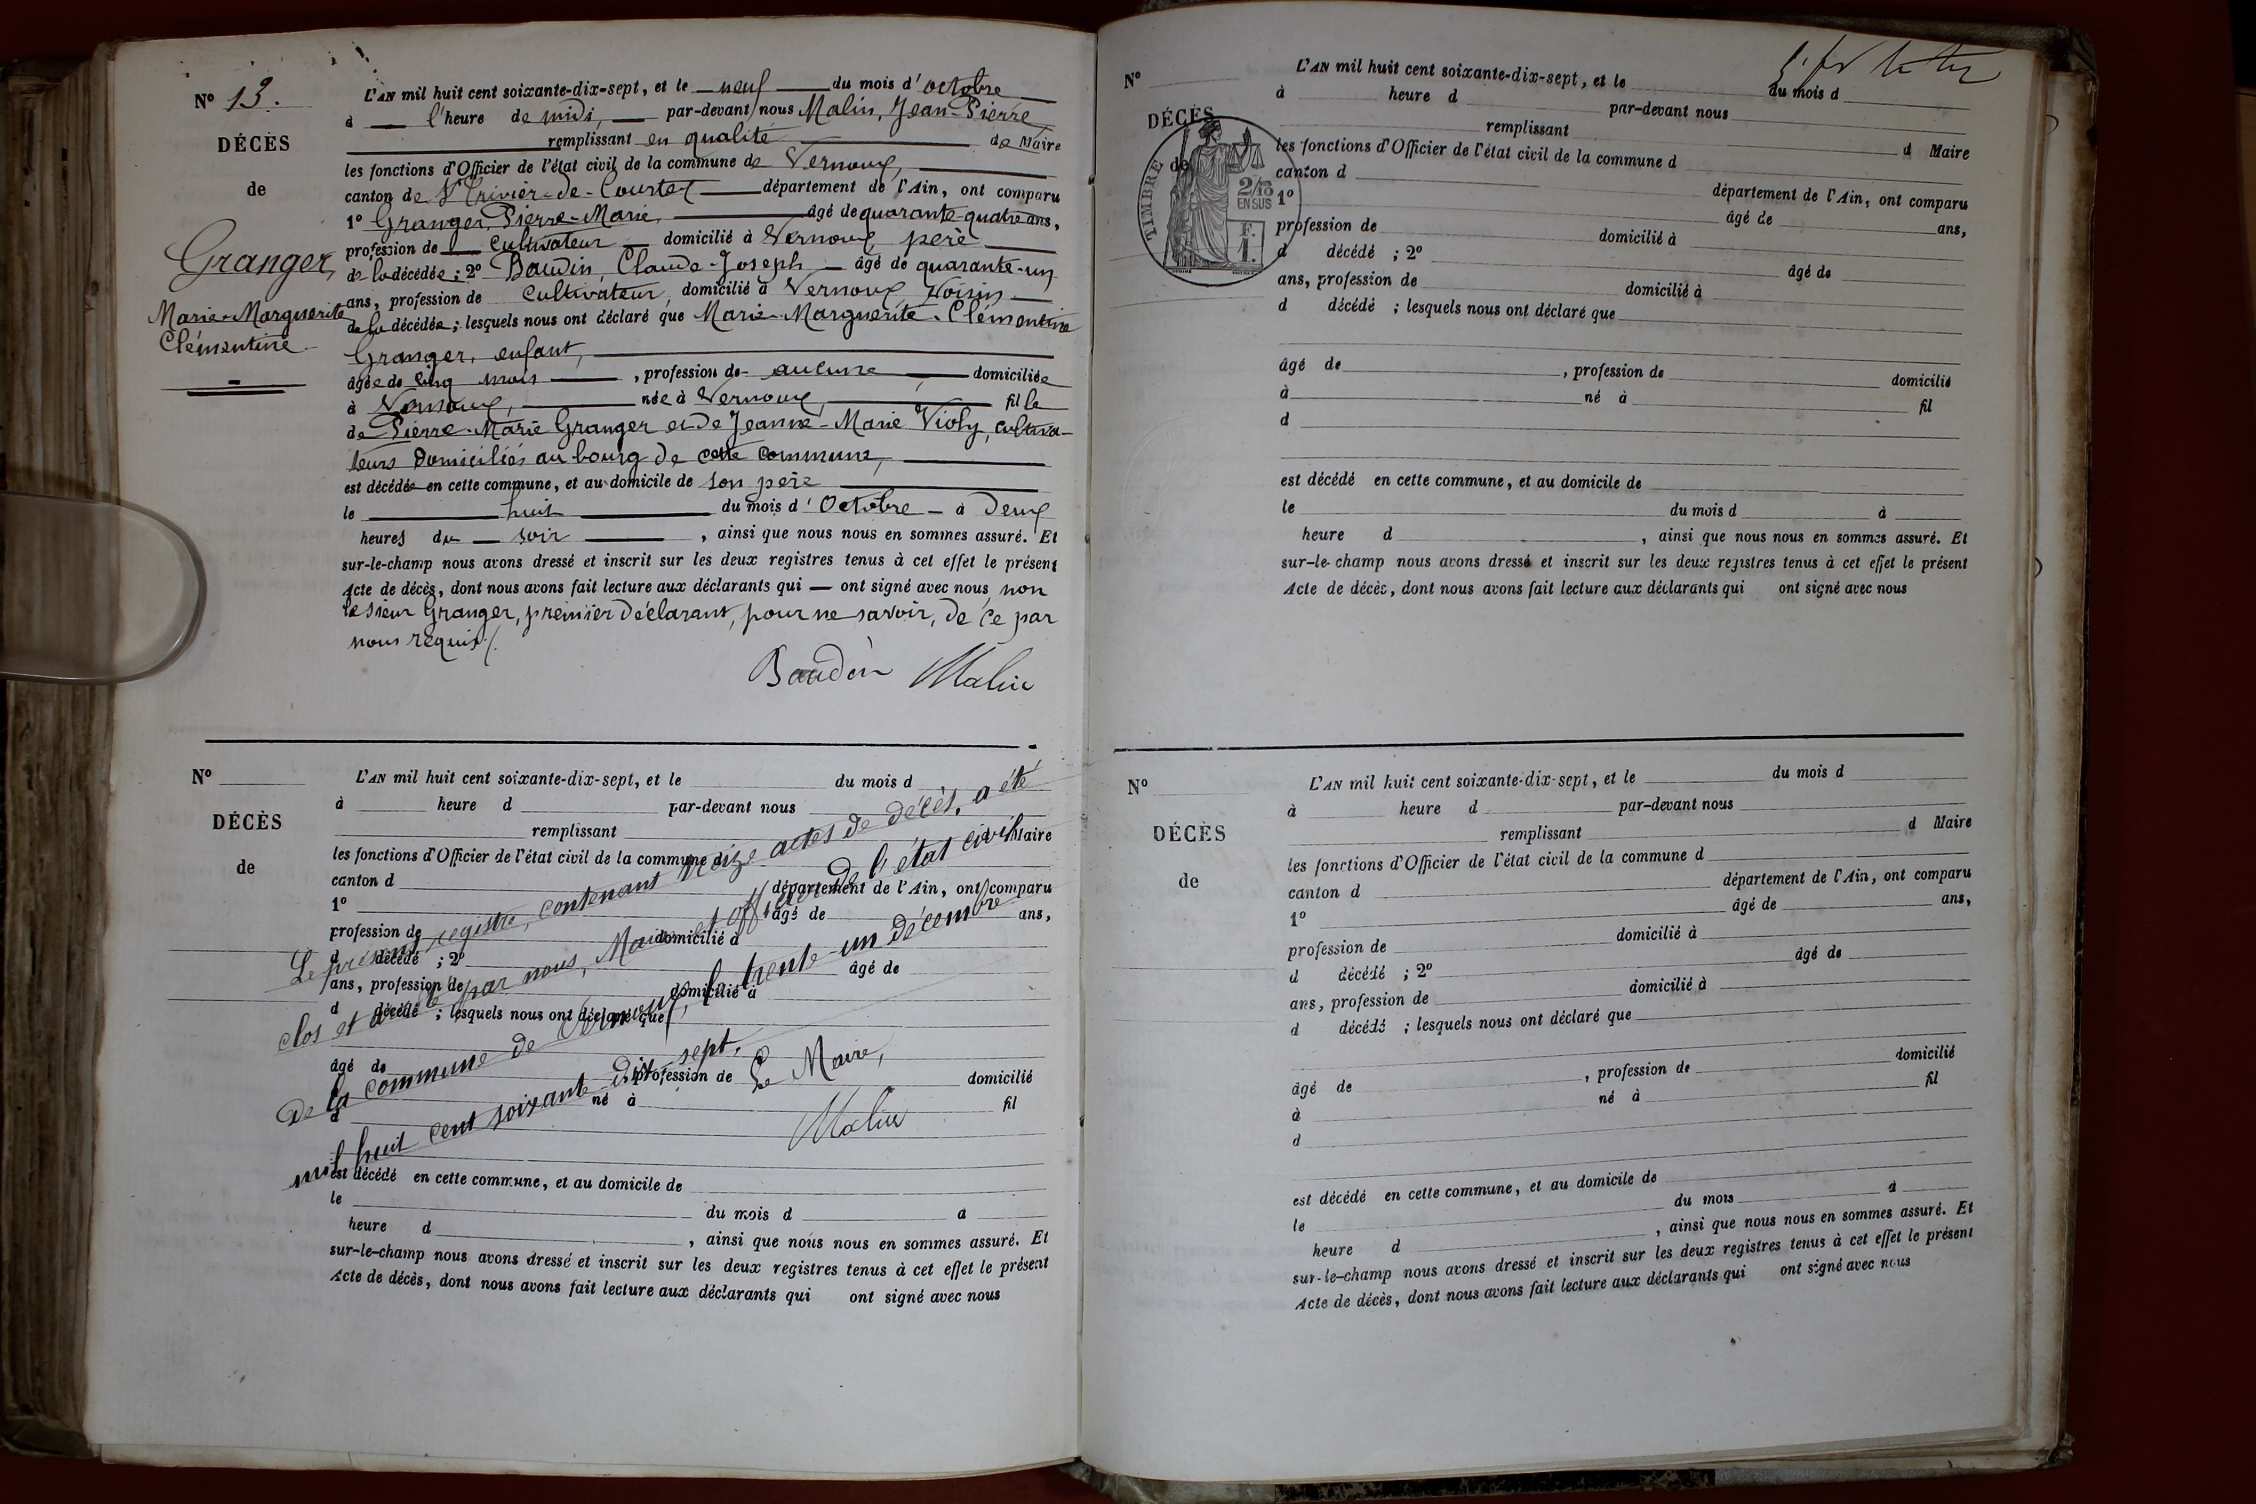 Nº 13.
DÉCÈS
de
Granger,
Marie-Marguerite
Clémentine
L'AN mil huit cent soixante-dix-sept, et le neuf du mois d'octobre
à l'heure de midi, par-devant nous Malin, Jean-Pierre,
remplissant en qualité de Maire
les fonctions d'Officier de l'état civil de la commune de Vernoux,
canton de St Trivier-de-Courtes département de l'Ain, ont comparu
1º Granger, Pierre-Marie, âgé de quarante-quatre ans,
profession de cultivateur domicilié à Vernoux, père
de la décédée ; 2º Baudin, Claude-Joseph âgé de quarante-un
ans, profession de cultivateur, domicilié à Vernoux, voisin
de la décédée ; lesquels nous ont déclaré que Marie-Marguerite-Clémentine
Granger, enfant,
âgée de cinq mois, profession de aucune, domiciliée
à Vernoux, née à Vernoux, fille
de Pierre-Marie Granger et de Jeanne-Marie Violy, cultiva-
teurs domiciliés au bourg de cette commune,
est décédée en cette commune, et au domicile de son père
le huit du mois d'Octobre à Deux
heures du soir, ainsi que nous nous en sommes assuré. Et
sur-le-champ nous avons dressé et inscrit sur les deux registres tenus à cet effet le présent
Acte de décès, dont nous avons fait lecture aux déclarants qui ont signé avec nous, non
le sieur Granger, premier déclarant, pour ne savoir, de ce par
nous requis /.
Baudin Malin
Nº
DÉCÈS
de
L'AN mil huit cent soixante-dix-sept, et le du mois d
à heure d par-devant nous
remplissant Maire
les fonctions d'Officier de l'état civil de la commune d
canton d département de l'Ain, ont comparu
1º âgé de ans,
profession de domicilié à
d décédé ; 2º âgé de
ans, profession de domicilié à
d décédé ; lesquels nous ont déclaré que
âgé de , profession de domicilié
à né à fil
d
est décédé en cette commune, et au domicile de
le du mois d à
heure d , ainsi que nous nous en sommes assuré. Et
sur-le-champ nous avons dressé et inscrit sur les deux registres tenus à cet effet le présent
Acte de décès, dont nous avons fait lecture aux déclarants qui ont signé avec nous
Le présent registre, contenant treize actes de décès, a été
clos et arrêté par nous, Maire et officier de l'état civil
de la commune de Vernoux, le trente-un décembre
mil huit cent soixante-dix-sept.
Le Maire,
Malin
Nº
DÉCÈS
de
TIMBRE
2/10
EN SUS
F.
1.
L'AN mil huit cent soixante-dix-sept, et le du mois d
à heure d par-devant nous
remplissant d Maire
les fonctions d'Officier de l'état civil de la commune d
canton d département de l'Ain, ont comparu
1º âgé de ans,
profession de domicilié à
d décédé ; 2º âgé de
ans, profession de domicilié à
d décédé ; lesquels nous ont déclaré que
âgé de , profession de domicilié
à né à fil
d
est décédé en cette commune, et au domicile de
le du mois d à
heure d , ainsi que nous nous en sommes assuré. Et
sur-le-champ nous avons dressé et inscrit sur les deux registres tenus à cet effet le présent
Acte de décès, dont nous avons fait lecture aux déclarants qui ont signé avec nous
Nº
DÉCÈS
de
L'AN mil huit cent soixante-dix-sept, et le du mois d
à heure d par-devant nous
remplissant d Maire
les fonctions d'Officier de l'état civil de la commune d
canton d département de l'Ain, ont comparu
1º âgé de ans,
profession de domicilié à
d décédé ; 2º âgé de
ans, profession de domicilié à
d décédé ; lesquels nous ont déclaré que
âgé de , profession de domicilié
à né à fil
d
est décédé en cette commune, et au domicile de
le du mois à
heure d , ainsi que nous nous en sommes assuré. Et
sur-le-champ nous avons dressé et inscrit sur les deux registres tenus à cet effet le présent
Acte de décès, dont nous avons fait lecture aux déclarants qui ont signé avec nous